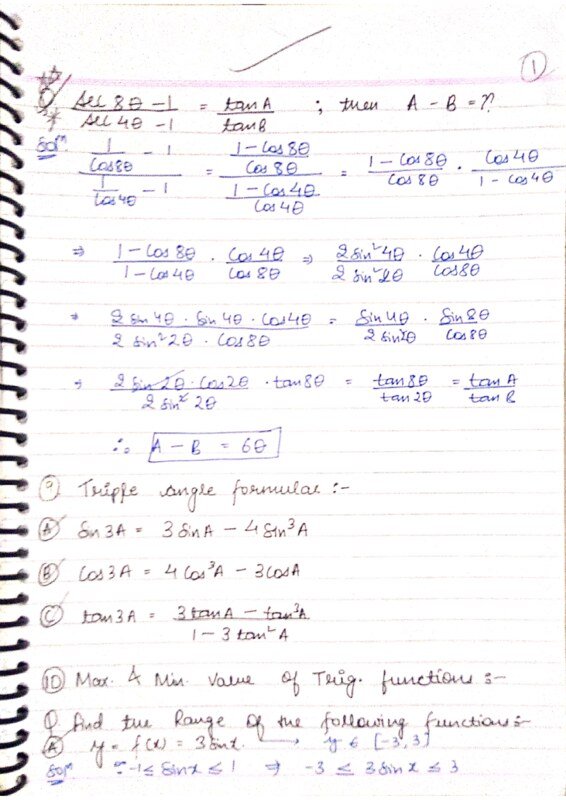 1
Q sec 8θ - 1 / sec 4θ - 1 = tan A / tan B ; then A - B = ??
Solⁿ (1/cos8θ - 1) / (1/cos4θ - 1) = ((1 - cos 8θ)/cos 8θ) / ((1 - cos 4θ)/cos 4θ) = (1 - cos 8θ)/cos 8θ · cos 4θ/(1 - cos 4θ)
⇒ (1 - cos 8θ)/(1 - cos 4θ) · cos 4θ/cos 8θ ⇒ 2 sin²4θ/2 sin²2θ · cos 4θ/cos8θ
⇒ (2 sin 4θ · sin 4θ · cos 4θ)/(2 sin²2θ · cos 8θ) = sin 4θ/2 sin²2θ · sin 8θ/cos 8θ
⇒ (2 sin 2θ · cos 2θ)/(2 sin² 2θ) · tan 8θ = tan 8θ/tan 2θ = tan A/tan B
∴ A - B = 6θ
9 Triple angle formulae :-
A sin 3A = 3 sin A - 4 sin³A
B cos 3A = 4 cos³A - 3 cos A
C tan 3A = (3 tan A - tan³A)/(1 - 3 tan²A)
10 Max. & Min. Value of Trig. functions :-
Q find the Range of the following functions :-
A y = f(x) = 3 sin x. ⟶ y ∈ [-3, 3]
Solⁿ ∵ -1 ≤ sin x ≤ 1 ⇒ -3 ≤ 3 sin x ≤ 3